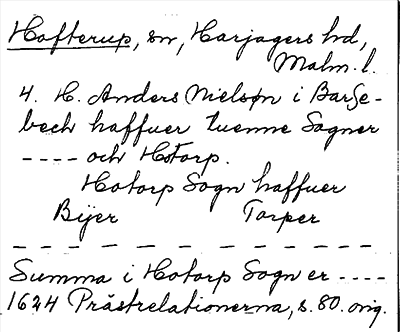 Hofterup, sn, Harjagers hd,
Malm. l.
4. H. Anders Nielsøn i Barse-
bech haffuer tuenne Sogner
---- och Hotorp.
Hotorp Sogn haffuer
Bijer Torper
Summa i Hotorp Sogn er ----
1624 Prästrelationerna, s. 80. orig.